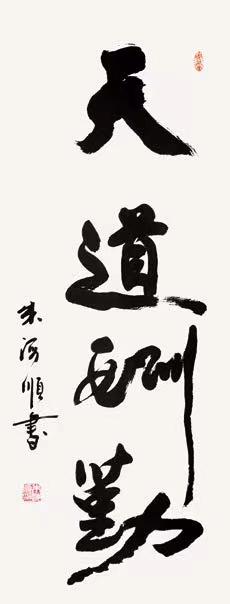 天道酬勤
朱海順書